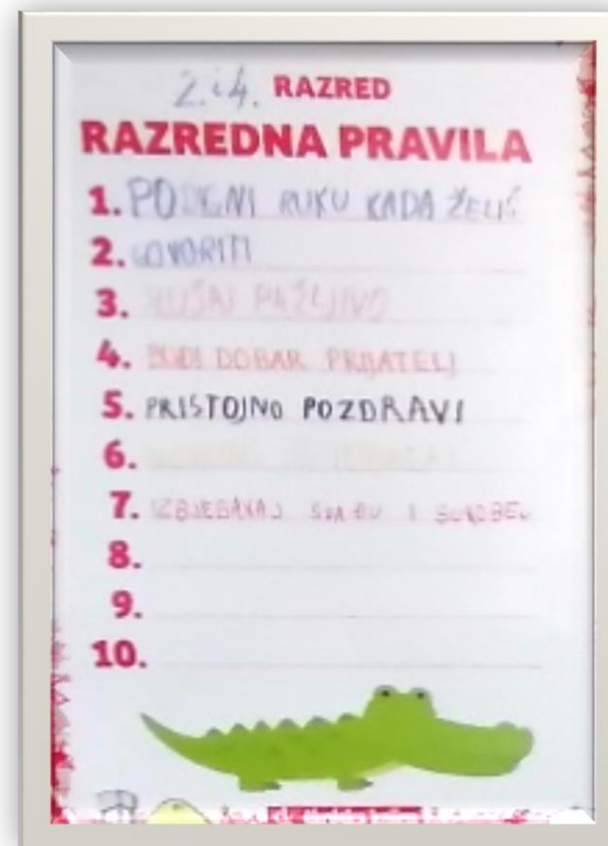 2. i 4. RAZRED
RAZREDNA PRAVILA
1. PODIGNI RUKU KADA ŽELIŠ
2. GOVORITI
3. SLUŠAJ PAŽLJIVO
4. BUDI DOBAR PRIJATELJ
5. PRISTOJNO POZDRAVI
6.
7. IZBJEGAVAJ SVAĐU I
8.
9.
10.